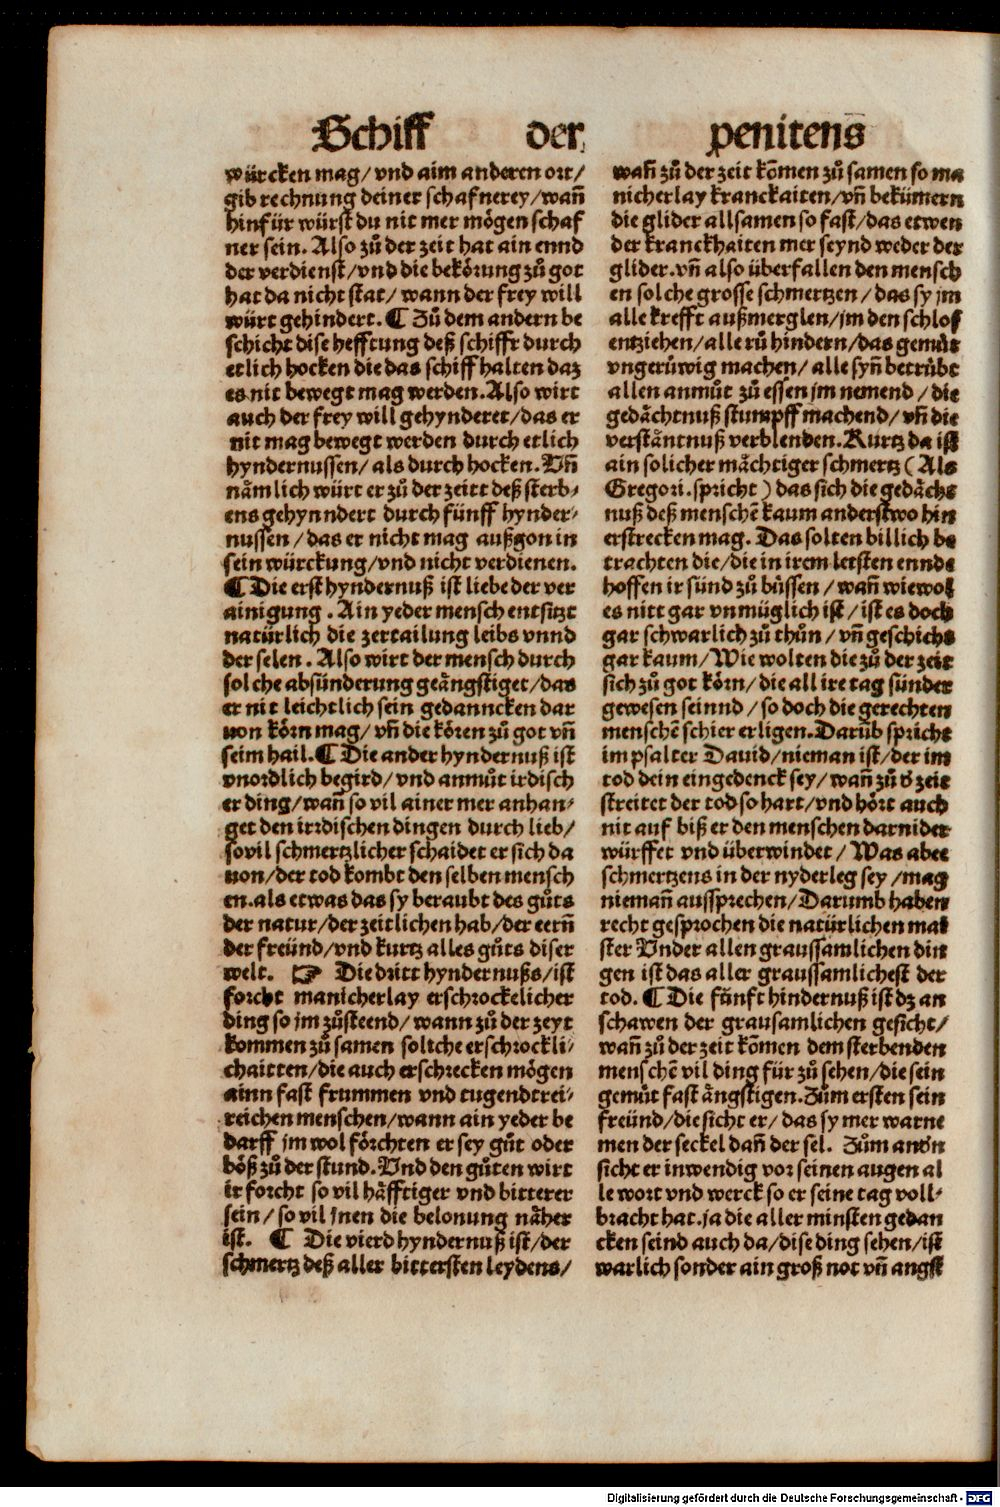 Schiff der penitens
würcken mag/ vnd aim anderen ort/
gib rechnung deiner schafnerey/wañ
hinfür würst du nit mer mögen schaf
ner sein. Also zů der zeit hat ain ennd
der verdienst/vnd die bekörung zů got
hat da nicht stat/ wann der frey will
würt gehindert. ¶ Zů dem andern be
schicht dise hefftung deß schiffr durch
etlich hocken die das schiff halten daz
es nit bewegt mag werden. Also wirt
auch der frey will gehynderet/das er
nit mag bewegt werden durch etlich
hyndernussen/ als durch hocken. Vñ
nämlich würt er zů der zeitt deß sterb⸗
ens gehynndert durch fünff hynder⸗
nussen/ das er nicht mag außgon in
sein würckung/vnd nicht verdienen.
¶ Die erst hyndernuß ist liebe der ver
ainigung. Ain yeder mensch entsitzt
natürlich die zertailung leibs vnnd
der selen. Also wirt der mensch durch
solche absünderung geängstiget/das
er nit leichtlich sein gedanncken dar
uon körn mag/ vñ die kören zů got vñ
seim hail. ¶ Die ander hyndernuß ist
vnordlich begird/ vnd anmůt irdisch
er ding/wañ so vil ainer mer anhan⸗
get den irrdischen dingen durch lieb/
so vil schmertzlicher schaidet er sich da
uon/der tod kombt den selben mensch
en. als etwas das sy beraubt des gůts
der natur/der zeitlichen hab/der eern̄
der freünd/vnd kurtz alles gůts diser
welt. ☞ Die dritt hyndernußs/ist
forcht manicherlay erschrockelicher
ding so jm zůsteend/ wann zů der zeyt
kommen zů samen soltche erschrockli⸗
chaitten/die auch erschrecken mögen
ainn fast frummen vnd tugendtrei⸗
reichen menschen/wann ain yeder be
darff jm wol förchten er sey gůt oder
böß zů der stund. Vnd den gůten wirt
ir forcht so vil häfftiger vnd bitterer
sein/ so vil jnen die belonung näher
ist. ¶ Die vierd hyndernuß ist/der
schmertz deß aller bittersten leydens/
wañ zů der zeit kōmen zů samen so ma
nicherlay kranckaiten/ vñ bekümern
die glider allsamen so fast/das etwen
der kranckhaiten mer seynd weder der
glider. vñ also überfallen den mensch
en solche grosse schmertzen/das sy jm
alle krefft außmerglen/jm den schlof
entziehen/alle rů hindern/das gemůt
vngerůwig machen/ alle syñ betrübt
allen anmůt zů essen jm nemend/ die
gedächtnuß stumpff machend/ vñ die
verstäntnuß verblenden. Kurtz da ist
ain solicher mächtiger schmertz (Als
Gregori. spricht) das sich die gedächt
nuß deß menschē kaum anderstwo hin
erstrecken mag. Das solten billich be
trachten die/die in irem letsten ennde
hoffen ir sünd zů büssen/ wañ wiewol
es nitt gar vnmüglich ist/ ist es doch
gar schwarlich zů thůn/ vñ geschicht
gar kaum/Wie wolten die zů der zeit
sich zů got körn/die all ire tag sünder
gewesen seinnd/ so doch die gerechten
menschē schier erligen. Darūb spricht
im psalter Dauid/nieman ist/der im
tod dein eingedenck sey/ wañ zů d' zeit
streitet der tod so hart/vnd hört auch
nit auf biß er den menschen darnider
würffet vnd überwindet/ Was aber
schmertzens in der nyderleg sey/mag
niemañ aussprechen/Darumb haben
recht gesprochen die natürlichen mai
ster Vnder allen graussamlichen din
gen ist das aller graussamlichest der
tod. ¶ Die fünft hindernuß ist dz an
schawen der grausamlichen gesicht/
wañ zů der zeit kōmen dem sterbenden
menschē vil ding für zů sehen/die sein
gemůt fast ängstigen. Zům ersten sein
freünd/die sicht er/ das sy mer warne
men der seckel dañ der sel. Zům and'n
sicht er inwendig vor seinen augen al
le wort vnd werck so er seine tag voll⸗
bracht hat. ja die aller minsten gedan
cken seind auch da/dise ding sehen/ist
warlich sonder ain groß not vñ angst
Digitalisierung gefördert durch die Deutsche Forschungsgemeinschaft - DFG